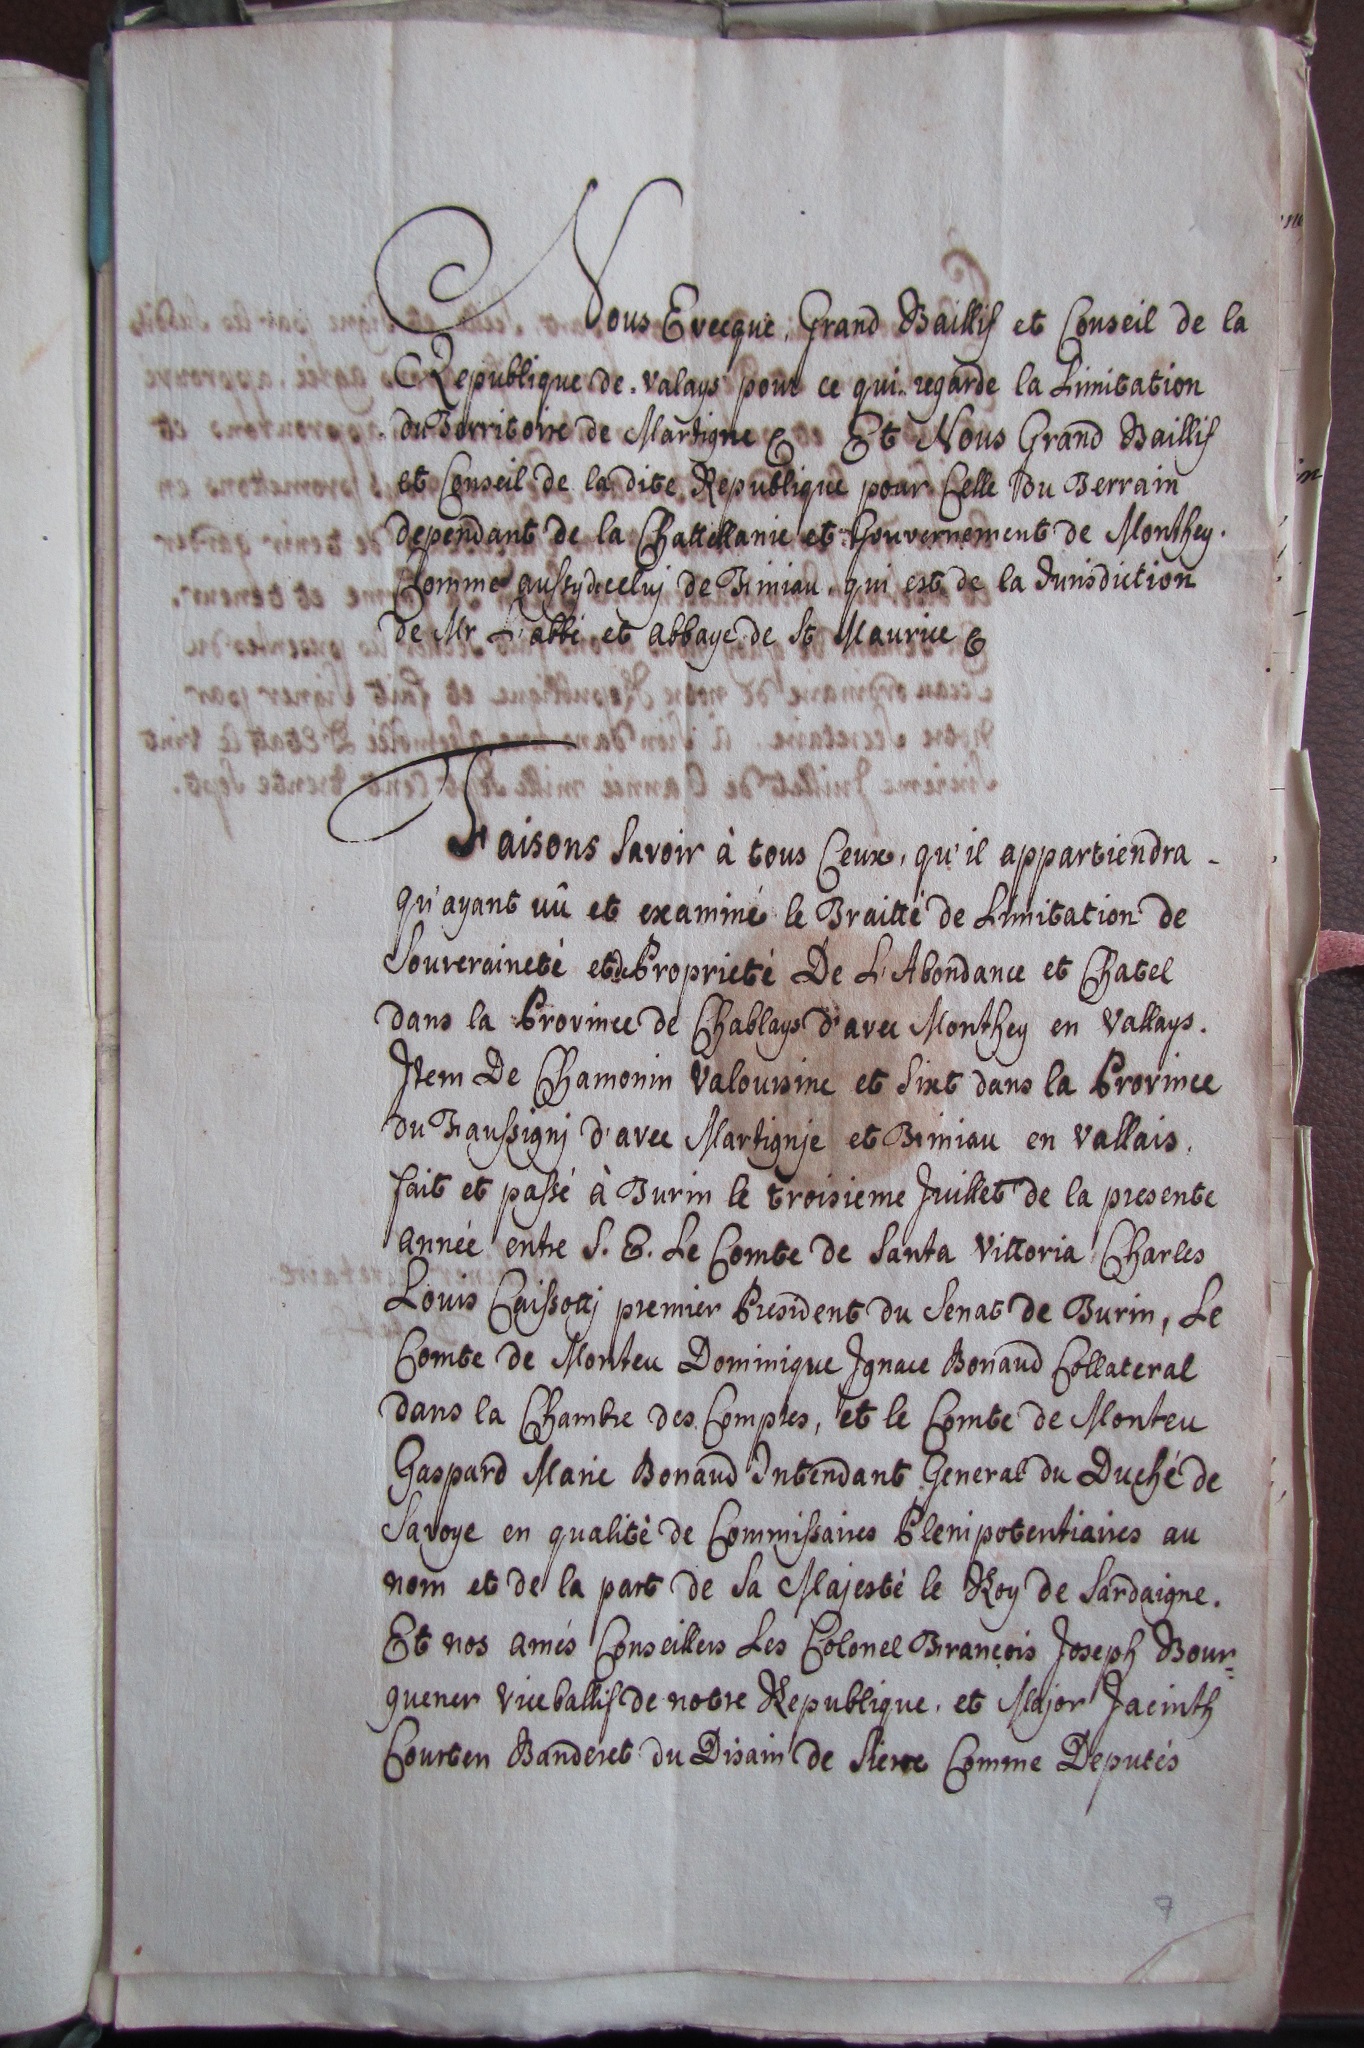 Nous Evecque, Grand Baillif et Conseil de la
Republique de Valays pour ce qui regarde la Limitation
du Territoire de Martigne & Et Nous Grand Baillif
et Conseil de la dite Republique pour Celle Du Terrain
dependant de la Chattellanie et Gouvernement de Monthey.
Comme aussy de celuj de Finiau, qui est de la Jurisdiction
de Mr L'abbé et abbaye de St Maurice &
Faisons Savoir à tous Ceux, qu'il appartiendra
qu'ayant vû et examiné le Traitté de Limitation de
Souveraineté et de Proprieté De L'Abondance et Chatel
dans la Province de Chablays d'avec Monthey en Vallays.
Item De Chamonin Valoursine et Sixt dans la Province
du Faussignj d'avec Martignje et Finiau en Vallais.
fait et passé à Turin le troisieme Juillet de la presente
année entre S. E. Le Comte de Santa Vittoria Charles
Louis Caissottj premier President du Senat de Turin, Le
Comte de Monteu Dominique Ignace Bonaud Collateral
dans la Chambre des Comptes, et le Comte de Monteu
Gaspard Marie Bonaud Intendant General du Duché de
Savoye en qualité de Commissaires Plenipotentiaires au
nom et de la part de Sa Majesté le Roy de Sardaigne.
Et nos amés Conseillers Les Colonel François Joseph Bour=
guener Viceballif de notre Republique, et Major Jacinth
Courten Banderet du Disain de Sierre Comme Deputés
7